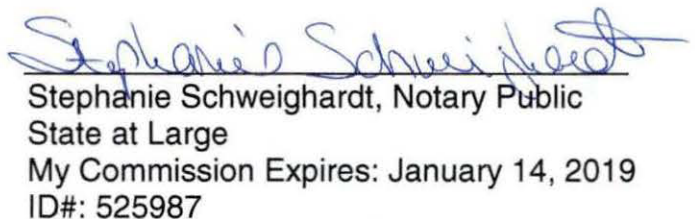 Stephanie Schweighardt
Stephanie Schweighardt, Notary Public
State at Large
My Commission Expires: January 14, 2019
ID#: 525987